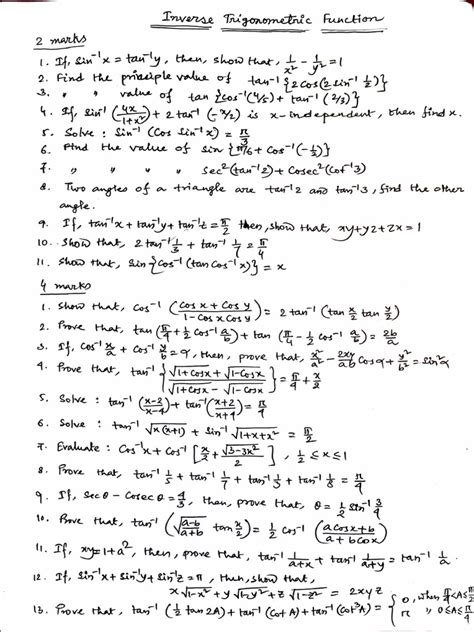 Inverse Trigonometric Function
2 marks
1. If, sin⁻¹x = tan⁻¹y, then, show that, 1/x² - 1/y² = 1
2. Find the principle value of tan⁻¹{2cos(2sin⁻¹ 1/2)}
3. " " value of tan{cos⁻¹(4/5) + tan⁻¹(2/3)}
4. If, sin⁻¹(4x/(1+x²)) + 2tan⁻¹(-x/2) is x-independent, then find x.
5. Solve: sin⁻¹(cos sin⁻¹x) = π/3
6. Find the value of sin{π/6 + cos⁻¹(-1/2)}
7. " " " " sec²(tan⁻¹2) + cosec²(cot⁻¹3)
8. Two angles of a triangle are tan⁻¹2 and tan⁻¹3, find the other
angle.
9. If, tan⁻¹x + tan⁻¹y + tan⁻¹z = π/2 then, show that, xy+yz+zx = 1
10. Show that, 2tan⁻¹ 1/3 + tan⁻¹ 1/7 = π/4
11. Show that, sin{cos⁻¹(tan cos⁻¹x)} = x
4 marks
1. Show that, cos⁻¹((cosx + cosy)/(1-cosx cosy)) = 2tan⁻¹(tan x/2 tan y/2)
2. Prove that, tan(π/4 + 1/2 cos⁻¹ a/b) + tan(π/4 - 1/2 cos⁻¹ a/b) = 2b/a
3. If, cos⁻¹ x/a + cos⁻¹ y/b = α, then, prove that, x²/a² - 2xy/ab cosα + y²/b² = sin²α
4. Prove that, tan⁻¹{(√(1+cosx) + √(1-cosx))/(√(1+cosx) - √(1-cosx))} = π/4 + x/2
5. Solve: tan⁻¹((x-2)/(x-4)) + tan⁻¹((x+2)/(x+4)) = π/4
6. Solve: tan⁻¹√(x(x+1)) + sin⁻¹√(1+x+x²) = π/2
7. Evaluate: cos⁻¹x + cos⁻¹[x/2 + √(3-3x²)/2], 1/2 ≤ x ≤ 1
8. Prove that, tan⁻¹ 1/5 + tan⁻¹ 1/7 + tan⁻¹ 1/3 + tan⁻¹ 1/8 = π/4
9. If, secθ - cosecθ = 4/3, then, prove that, θ = 1/2 sin⁻¹ 3/4
10. Prove that, tan⁻¹(√((a-b)/(a+b)) tan x/2) = 1/2 cos⁻¹((a cosx + b)/(a + b cosx))
11. If, xy = 1+a², then, prove that, tan⁻¹ 1/(a+x) + tan⁻¹ 1/(a+y) = tan⁻¹ 1/a
12. If, sin⁻¹x + sin⁻¹y + sin⁻¹z = π, then, show that,
x√(1-x²) + y√(1-y²) + z√(1-z²) = 2xyz
13. Prove that, tan⁻¹(1/2 tan2A) + tan⁻¹(cotA) + tan⁻¹(cot³A) = { 0, when π/4<A≤π/2
π " 0≤A≤π/4